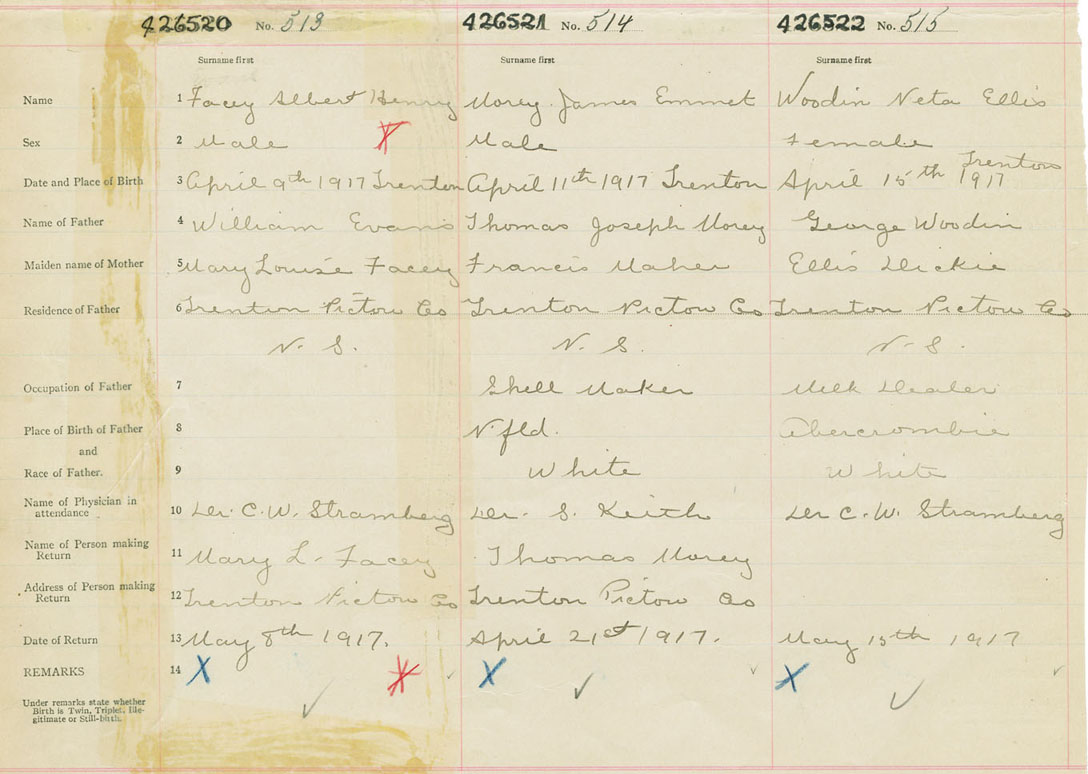 426520 No. 513 426521 No. 514 426522 No. 515
Surname first Surname first Surname first
Name 1 Facey Albert Henry Morey James Emmet Woodin Neta Ellis
Sex 2 Male Male Female
Trenton
Date and Place of Birth 3 April 9th 1917 Trenton April 11th 1917 Trenton April 15th 1917
Name of Father 4 William Evans Thomas Joseph Morey George Woodin
Maiden name of Mother 5 Mary Louise Facey Francis Maher Ellis Dickie
Residence of Father 6 Trenton Pictow Co Trenton Pictow Co Trenton Pictow Co
N. S. N. S. N. S.
Occupation of Father 7 Shell Maker Milk Dealer
Place of Birth of Father 8 N.fld. Abercrombie
and
Race of Father. 9 White White
Name of Physician in
attendance 10 Dr. C. W. Stramberg Dr. S. Keith Dr C. W. Stramberg
Name of Person making
Return 11 Mary L. Facey Thomas Morey
Address of Person making
Return 12 Trenton Pictow Co Trenton Pictow Co
Date of Return 13 May 8th 1917. April 21st 1917. May 15th 1917
REMARKS 14 X X X
Under remarks state whether
Birth is Twin, Triplet, Ille-
gitimate or Still-birth.